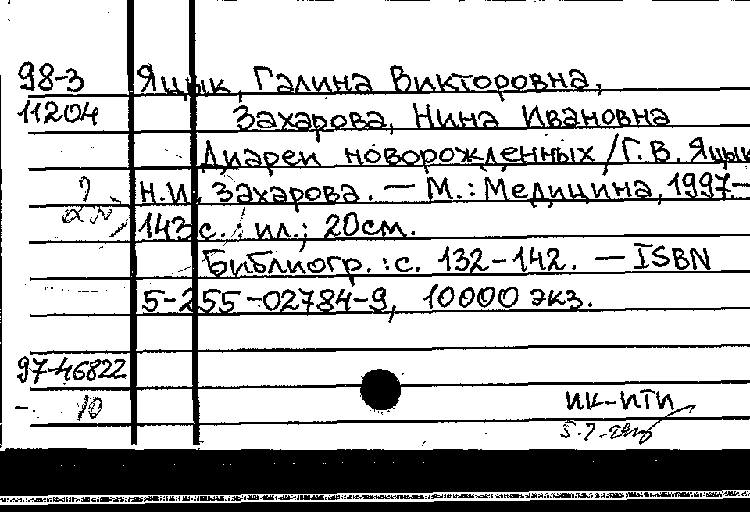 98-3 Яцык, Галина Викторовна,
11204 Захарова, Нина Ивановна
Диареи новорожденных / Г. В. Яцык
Н.И. Захарова. — М.: Медицина, 1997-
143 с.: ил.; 20 см.
Библиогр.: с. 132-142. — ISBN
5-255-02784-9, 10000 экз.
97-46822
10
ИК-ИТИ